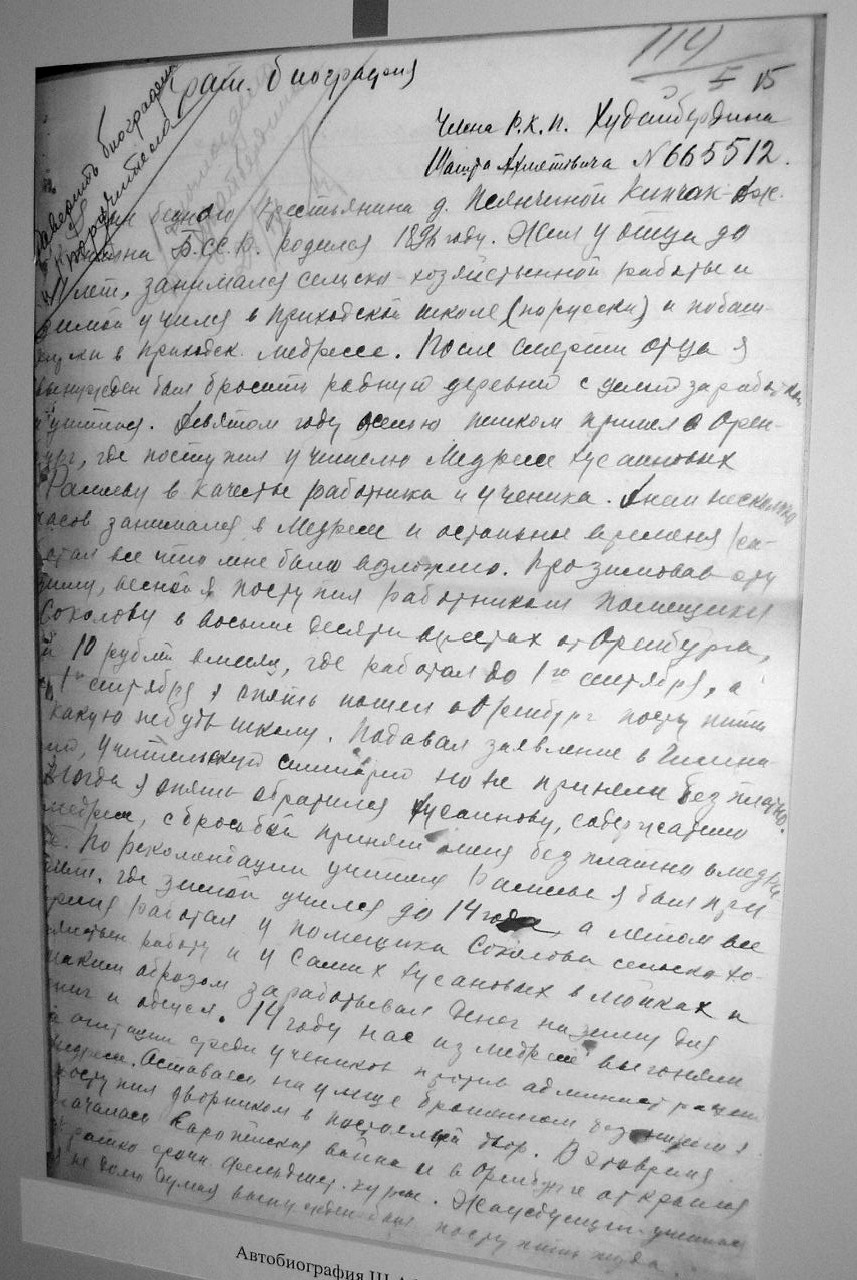 114
5 15
Крат. биография
Заверить биографию
поручителя
Члена Р.К.П. Худайбердина
Шагита Ахметовича N665512.
бедного крестьянина д. Псянчиной Кипчак-
Б.С.С.Р. родился 1896 году. Жил у отца до
11 лет, занимался сельско-хозяйственной работы и
зимой учился в приходской школе (порусски) и побаш-
в приходск. медрессе. После смерти отца я
вынужден был бросить родную деревню с целью заработка
и учиться. Девятом году осенью пешком пришел в Орен-
бург, где поступил учителю Медресе Хусаиновых
Рамиеву в качестве работника и ученика. Днем несколько
часов занимался в Медресе и остальные временя ра-
ботал все что мне было возложено. Прозимовав эту
зиму, весной я поступил работником Помещику
Соколову в восьми десяти верстах от Оренбурга,
10 рублей в месяц, где работал до 1го сентября, а
1го сентября я опять пошел в Оренбург поступить
какую нибудь школу. Подавал заявление в Гимна-
зию, учительскую семинарию но не принели безплатно.
Тогда я опять обратился Хусаинову, содержателю
медресе, с просьбой принять меня безплатно в медре-
се. По рекомендации учителя Рамиева я был при-
нят, где зимой учился до 14 года, а летом все
время работал у помещика Соколова сельско хо-
работу и у самих Хусаиновых в мойках и
таким образом зарабатывал денег на зиму для
книг и одежд. 14 году нас из медресе выгоняли
агитации среди учеников против администрации
медресе. Оставаясь на улице брошенном без я
поступил дворником в постоялый двор. В это время
началась Европейская война и в Оренбурге открылся
кратко срочн. фельдшер. курсы. Жаждующий учиться
я не долго думая вынужден был поступить туда.
Автобиография Ш.А